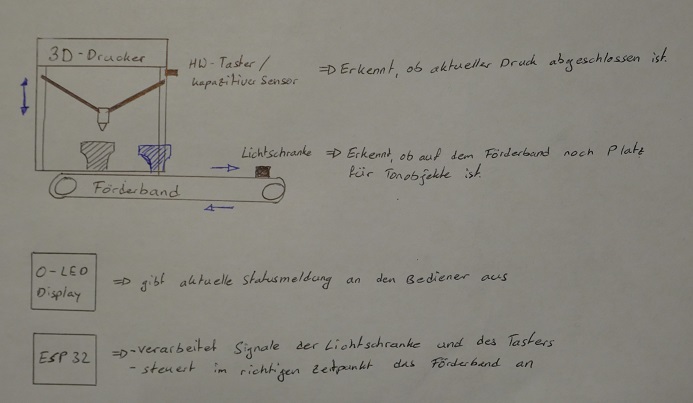 3D-Drucker
HW-Taster/
kapazitiver Sensor
=> Erkennt, ob aktueller Druck abgeschlossen ist.
Lichtschranke => Erkennt, ob auf dem Förderband noch Platz
für Tonobjekte ist.
Förderband
O-LED
Display
=> gibt aktuelle Statusmeldung an den Bediener aus
ESP 32
=> -verarbeitet Signale der Lichtschranke und des Tasters
- steuert im richtigen Zeitpunkt das Förderband an